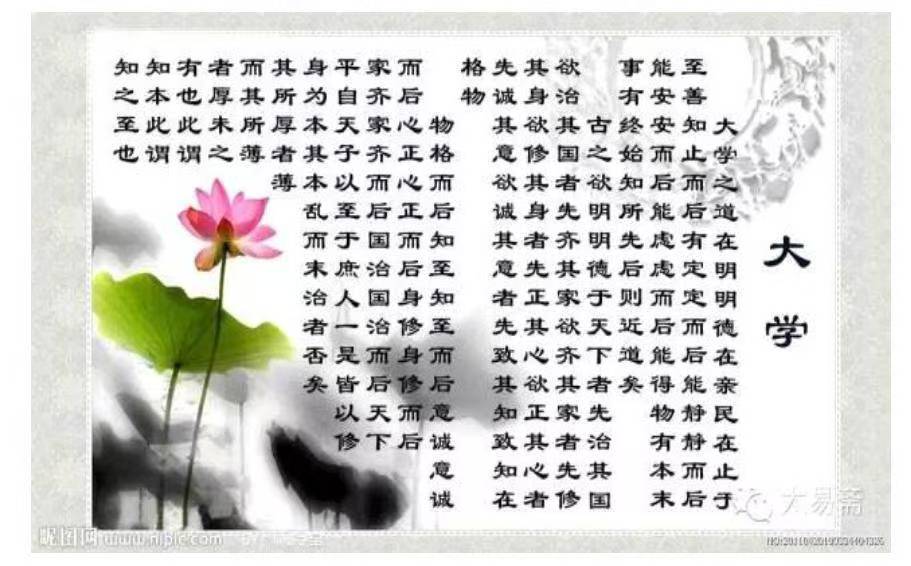 大学
大学之道在明明德在亲民在止于
至善知止而后有定定而后能静静而后
能安安而后能虑虑而后能得物有本末
事有终始知所先后则近道矣
古之欲明明德于天下者先治其国
欲治其国者先齐其家欲齐其家者先修
其身欲修其身者先正其心欲正其心者
先诚其意欲诚其意者先致其知致知在
格物
物格而后知至知至而后意诚意诚
而后心正心正而后身修身修而后
家齐家齐而后国治国治而后天下
平自天子以至于庶人一是皆以修
身为本其本乱而末治者否矣
其所厚者薄
而其所薄
者厚未之
有也此谓
知本此谓
知之至也
大易斋
昵图网 www.nipic.com